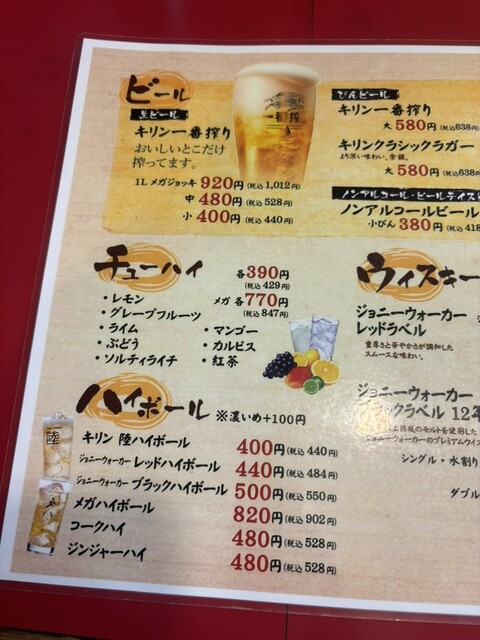 ビール
生ビール
キリン一番搾り
おいしいとこだけ
搾ってます。
1L メガジョッキ 920円(税込 1,012円)
中 480円(税込 528円)
小 400円(税込 440円)
一番搾り
びんビール
キリン一番搾り
大 580円(税込638円
キリンクラシックラガー
大 580円(税込638円
ノンアルコール・ビールテイス
ノンアルコールビール
小びん 380円(税込 418
チューハイ
各390円
(税込 429円)
メガ 各770円
(税込 847円)
・レモン
・グレープフルーツ
・ライム
・ぶどう
・ソルティライチ
・マンゴー
・カルピス
・紅茶
ウィスキー
ジョニーウォーカー
レッドラベル
重厚さと華やかさが調和した
スムースな味わい。
ジョニーウォーカー
ックラベル 12年
ジョニーウォーカーのプレミアムウイス
シングル・水割り
ダブル
ハイボール ※濃いめ+100円
陸
キリン 陸ハイボール 400円(税込 440円)
ジョニーウォーカー レッドハイボール 440円(税込 484円)
ジョニーウォーカー ブラックハイボール 500円(税込 550円)
メガハイボール 820円(税込 902円)
コークハイ 480円(税込 528円)
ジンジャーハイ 480円(税込 528円)